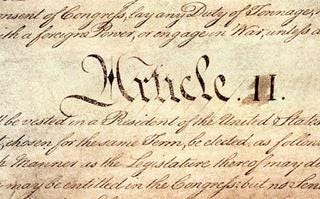 onsent of Congress, lay any Duty of Tonnage,
ith a foreign Power, or engage in War, unless a
Article. II.
ll be vested in a President of the United States
chosen for the same Term, be elected, as follow
Manner as the Legislature thereof may de
may be entitled in the Congress: but no Sen